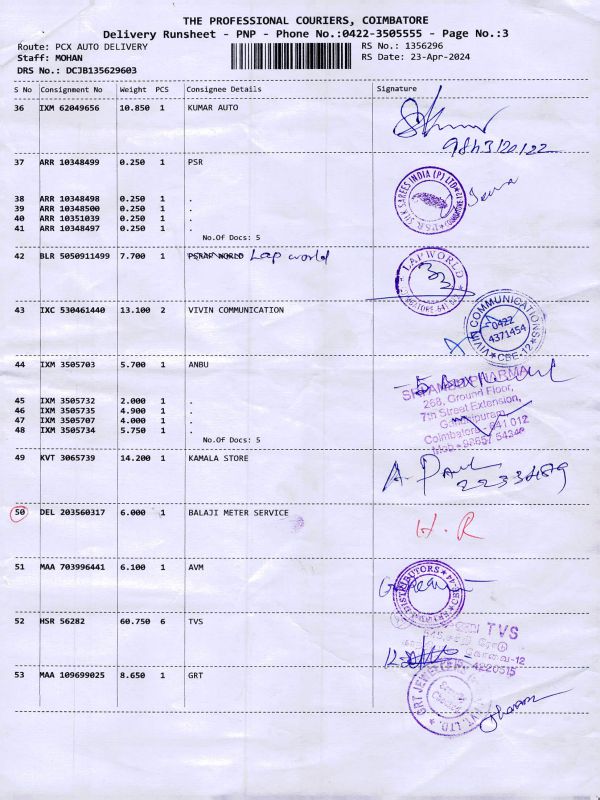 THE PROFESSIONAL COURIERS, COIMBATORE
Delivery Runsheet - PNP - Phone No.:0422-3505555 - Page No.:3
Route: PCX AUTO DELIVERY RS No.: 1356296
Staff: MOHAN RS Date: 23-Apr-2024
DRS No.: DCJB135629603
S No Consignment No Weight PCS Consignee Details Signature
36 IXM 62049656 10.850 1 KUMAR AUTO
9843120122
37 ARR 10348499 0.250 1 PSR
P.S.R. SILK SAREES INDIA (P) LTD
38 ARR 10348498 0.250 1 .
39 ARR 10348500 0.250 1 .
40 ARR 10351039 0.250 1 .
41 ARR 10348497 0.250 1 .
No.Of Docs: 5
42 BLR 5050911499 7.700 1 Lap world
LAP WORLD
43 IXC 530461440 13.100 2 VIVIN COMMUNICATION
VIVIN COMMUNICATIONS
0422
4371454
CBE-12
44 IXM 3505703 5.700 1 ANBU
268, Ground Floor,
7th Street Extension,
Gandhipuram,
Coimbatore - 641 012
45 IXM 3505732 2.000 1 .
46 IXM 3505735 4.900 1 .
47 IXM 3505707 4.000 1 .
48 IXM 3505734 5.750 1 .
No.Of Docs: 5
49 KVT 3065739 14.200 1 KAMALA STORE
A. Paul
50 DEL 203560317 6.000 1 BALAJI METER SERVICE
H.R
51 MAA 703996441 6.100 1 AVM
DISTRIBUTORS
52 HSR 56282 60.750 6 TVS
TVS
4220515
53 MAA 109699025 8.650 1 GRT